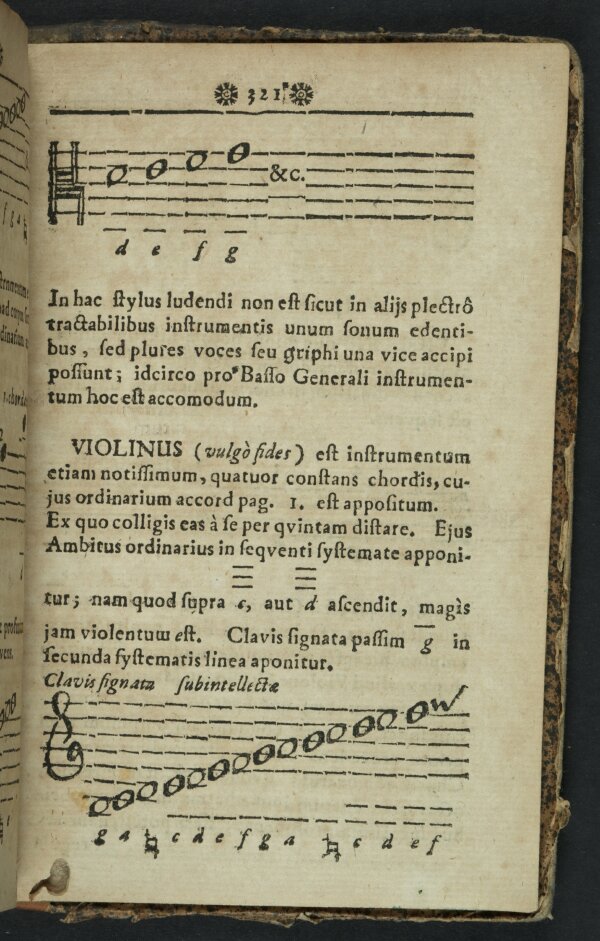 321
&c.
d e f g
In hac ſtylus ludendi non eſt ſicut in alijs plectrô
tractabilibus inſtrumentis unum ſonum edenti-
bus, ſed plures voces ſeu griphi una vice accipi
poſſunt; idcirco pro Baſſo Generali inſtrumen-
tum hoc eſt accomodum.
VIOLINUS (vulgò fides) eſt inſtrumentum
etiam notiſſimum, quatuor conſtans chordis, cu-
jus ordinarium accord pag. 1. eſt appoſitum.
Ex quo colligis eas à ſe per qvintam diſtare. Ejus
Ambitus ordinarius in ſeqventi ſyſtemate apponi-
tur; nam quod ſupra c, aut d aſcendit, magìs
jam violentum eſt. Clavis ſignata paſſim g in
ſecunda ſyſtematis linea aponitur.
Clavis ſignata ſubintellectæ
g a ♮ c d e f g a ♮ c d e f